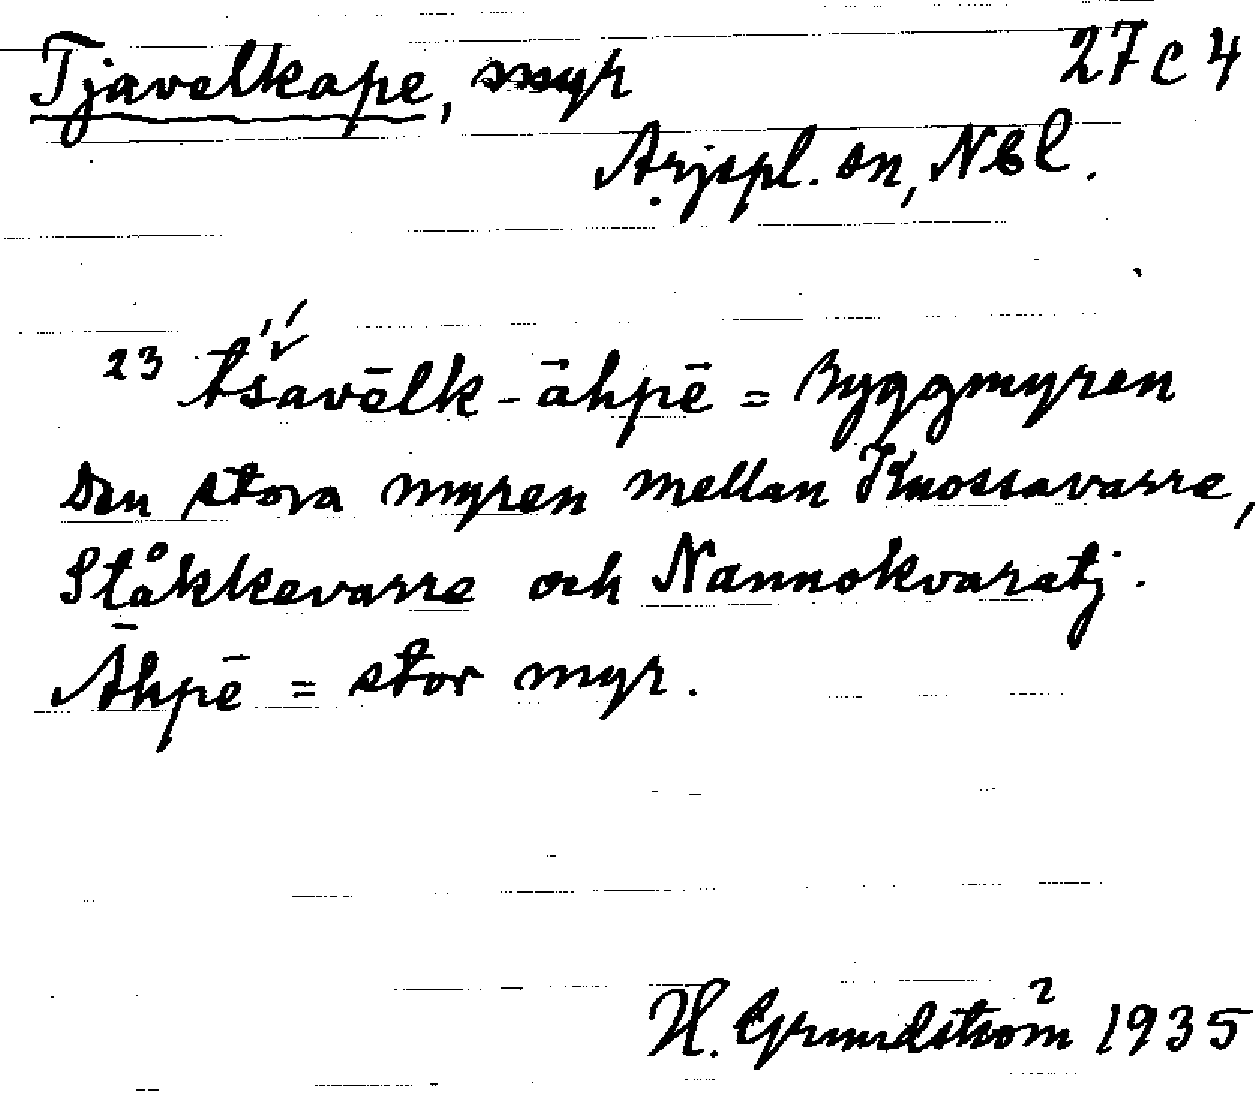 Tjavelkape, myr 27 c 4
Arjepl. sn, Nbl.
23 tšavēlk-āhpē = Byggmyren
Den stora myren mellan Knossavarre,
Ståkkevarre och Nannokvaratj.
Āhpē = stor myr.
H. Grundström 1935